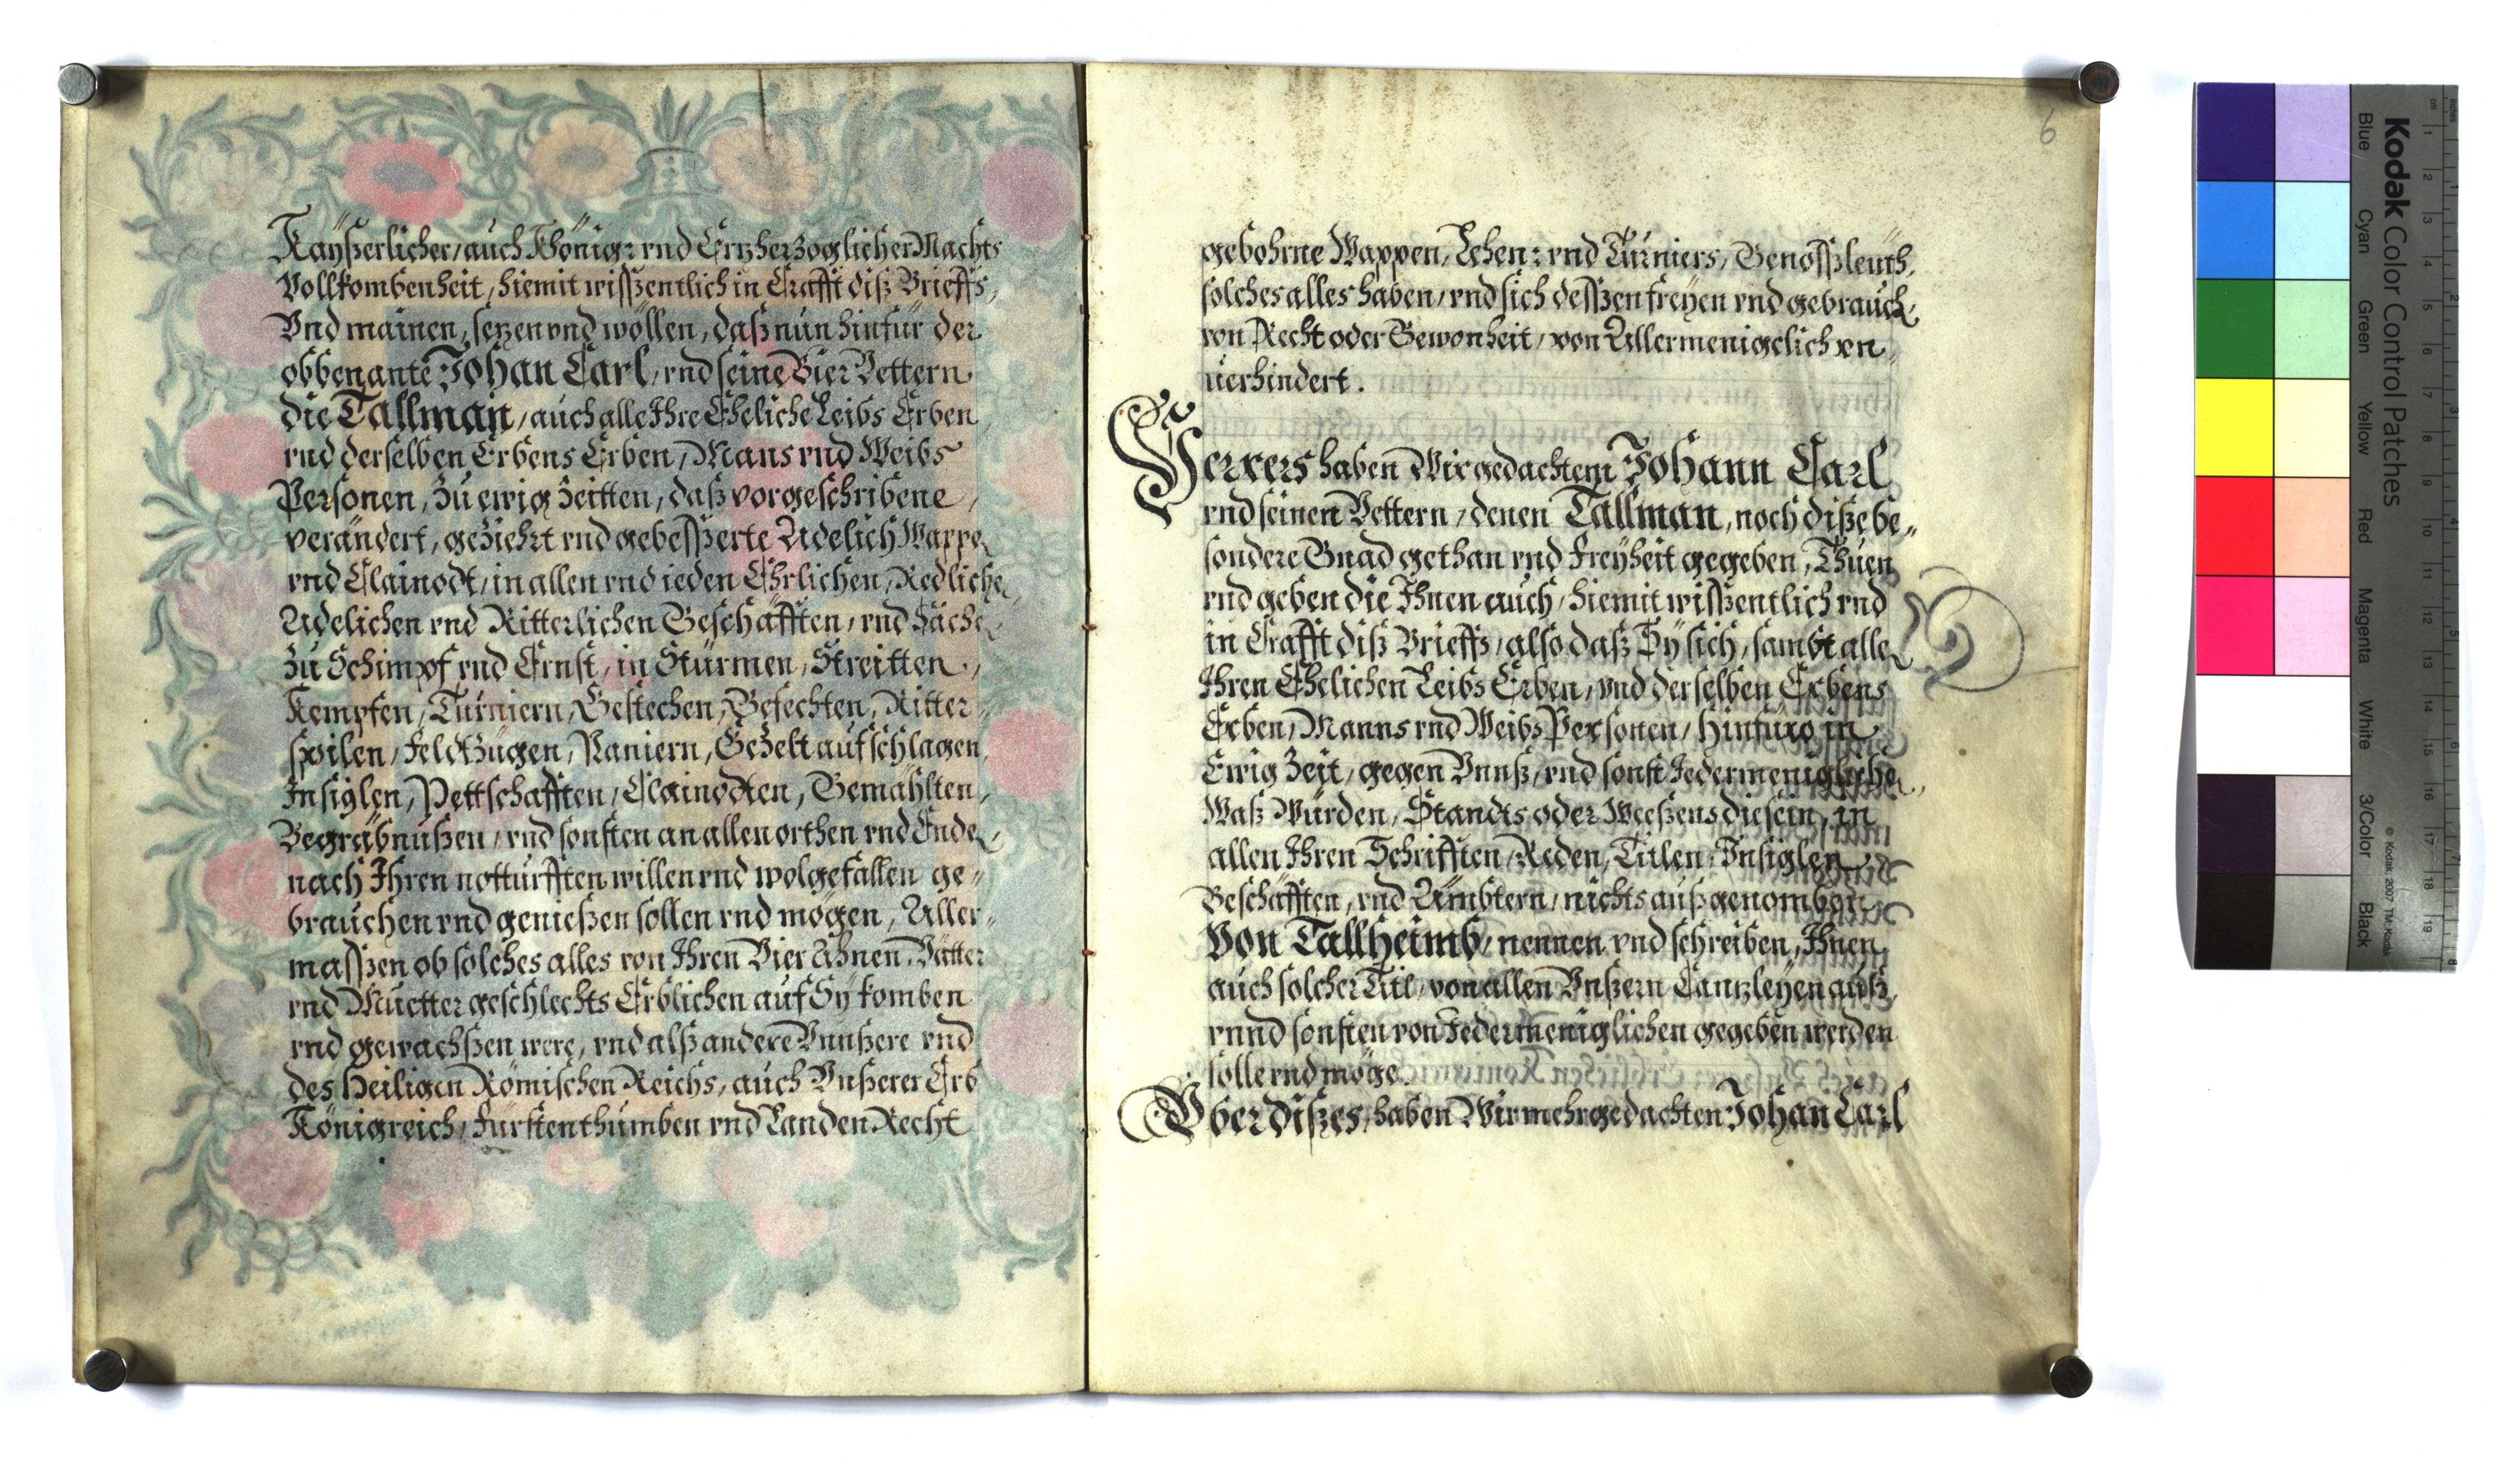 Kaÿßerlicher/auch König: vnd Ertzherzoglicher Machts
Vollkombenheit, hiemit wisszentlich in Crafft diß Brieffs,
Vnd mainen, setzen vnd wöllen, daß nún hinfür der
obbenante Johan Carl, vnd seine Vier Vettern
die Tallman, auch alle Ihre Eheliche Leibs Erben
vnd derselben Erbens Erben, Mans vnd Weibs
Personen, zú ewig Zeitten, daß vorgeschribene,
verändert, geziehrt vnd gebesszerte Adelich Wappe
vnd Clainodt, in allen vnd ieden Ehrlichen, Redliche
Adelichen vnd Ritterlichen Geschäfften, vnd Sache
zú Schimpf vnd Ernst, in Stúrmen, Streitten,
Kempfen, Túrniern, Gestechen, Gefechten, Ritter-
spilen, Feldtzúgen, Paniern, Gezelt aufschlagen,
Insiglen, Pettschafften, Clainodten, Gemählten,
Begräbnúßen, vnd sonsten an allen orthen vnd Ende
nach Ihren notturfften willen vnd wolgefallen ge-
brauchen vnd genießen sollen vnd mögen, Aller-
masszen ob solches alles von Ihren Vier Ahnen, Vätter
vnd Muetter geschlechts Erblichen auf Sÿ komben
vnd gewachßen were, vnd alß andere Vnnßere vnd
des Heiligen Römischen Reichs, auch Vnßerer Erb
Königreich, Fürstenthumben vnd Landen Recht
6
gebohrne Wappen, Lehen: vnd Túrniers, Genosszleúth,
solches alles haben, vnd sich desszen freÿen vnd gebraúch,
von Recht oder Gewonheit, von Allermenigclich vn-
verhindert.
Ferners haben Wir gedachtem Johann Carl
vnd seinen Vettern, denen Tallman, noch diße be-
sondere Gnad gethan vnd Freÿheit gegeben, Thúen
vnd geben die Ihnen auch, hiemit wisszentlich vnd
in Crafft diß Brieffs, also daß Sÿ sich, sambt alle
Ihren Ehelichen Leibs Erben, vnd derselben Erbens
Erben, Manns vnd Weibs Personen, hinfúro in
Ewig Zeit, gegen Vnnß, vnd sonst Jedermenigliche,
Waß Würden, Standts oder Weeßens die sein, in
allen Ihren Schrifften, Reden, Titlen, Insiglen
Geschäfften, vnd Ämbtern, nichts außgenomben
Von Tallheimb, nennen vnd schreiben, Ihnen
auch solcher Titl, von allen Vnßern Cantzleÿen auß,
vnnd sonsten von Jedermeniglichen gegeben werden
solle vnd möge.
Vber dißes, haben Wir mehrgedachten Johan Carl
Kodak Color Control Patches
Blue
Cyan
Green
Yellow
Red
Magenta
White
3/Color
Black
© Kodak, 2007 TM: Kodak